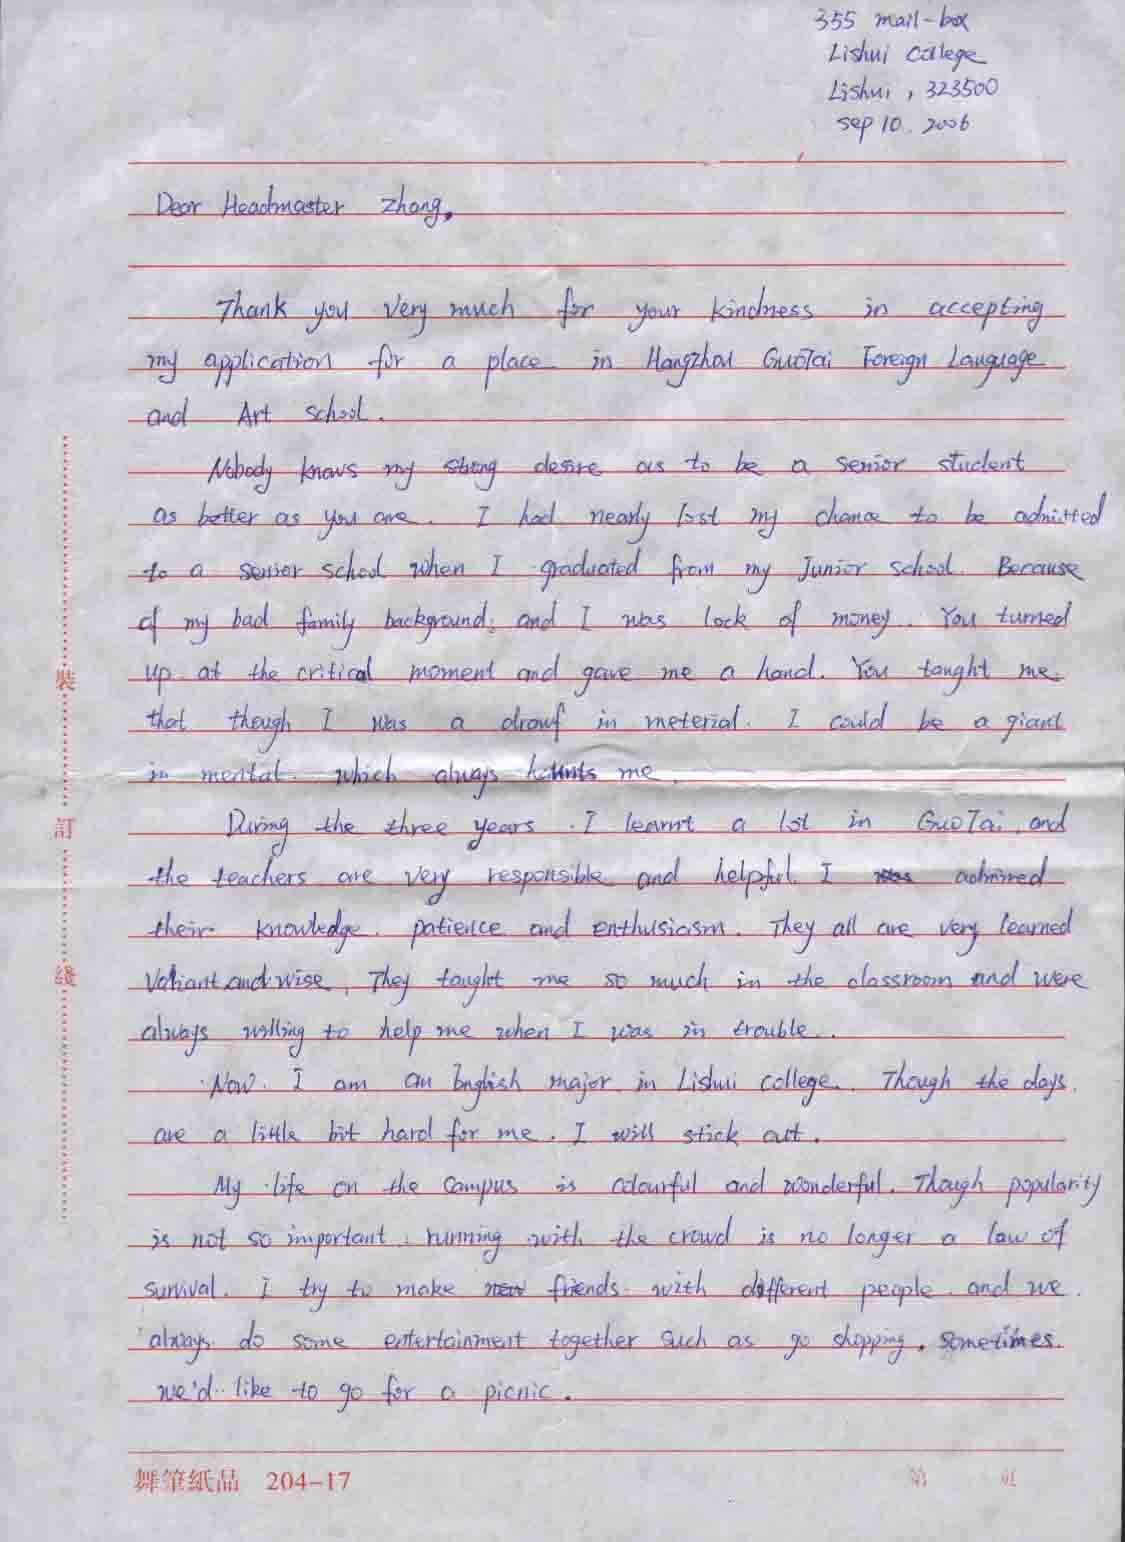 355 mail-box
Lishui College
Lishui, 323500
Sep 10. 2006
Dear Headmaster Zhang,
Thank you very much for your kindness in accepting
my application for a place in Hangzhou GuoTai Foreign Language
and Art school.
Nobody knows my strong desire as to be a senior student
as better as you are. I had nearly lost my chance to be admitted
to a senior school when I graduated from my Junior school. Because
of my bad family background, and I was lack of money. You turned
up at the critical moment and gave me a hand. You taught me
that though I was a drawf in meterial. I could be a giant
in mental. which always haunts me.
During the three years. I learnt a lot in GuoTai, and
the teachers are very responsible and helpful. I was admired
their knowledge. patience and enthusiasm. They all are very learned
valiant and wise, They taught me so much in the classroom and were
always willing to help me when I was in trouble.
Now. I am an English major in Lishui college. Though the days
are a little bit hard for me. I will stick out.
My life on the campus is colourful and wonderful. Though popularity
is not so important, running with the crowd is no longer a law of
survival. I try to make new friends with different people and we
always do some entertainment together such as go shopping. sometimes
we'd like to go for a picnic.
裝
訂
綫
舞筆紙品 204-17
第 頁